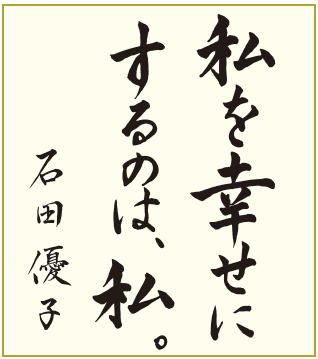 私を幸せに
するのは、私。
石田優子